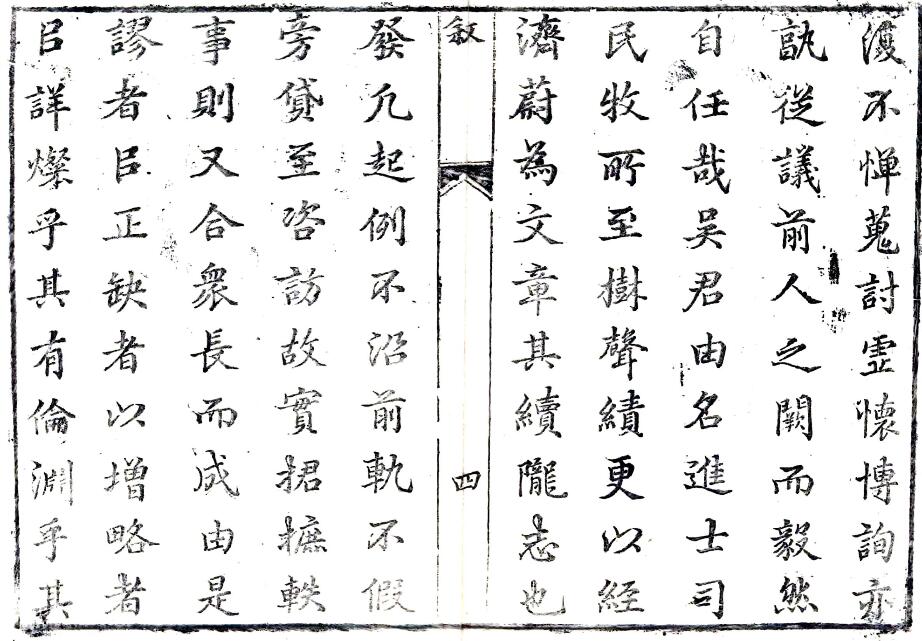 濩不惮蒐討霊懐博詢亦
孰從議前人之闕而毅然
自任哉吴君由名進士司
民牧所至樹聲績更以經
濟蔚為文章其續隴志也
敘
四
發凡起例不沿前軌不假
旁貸至咨訪故實捃摭軼
事則又合衆長而成由是
謬者㠯正缺者以增略者
㠯詳燦乎其有倫淵乎其